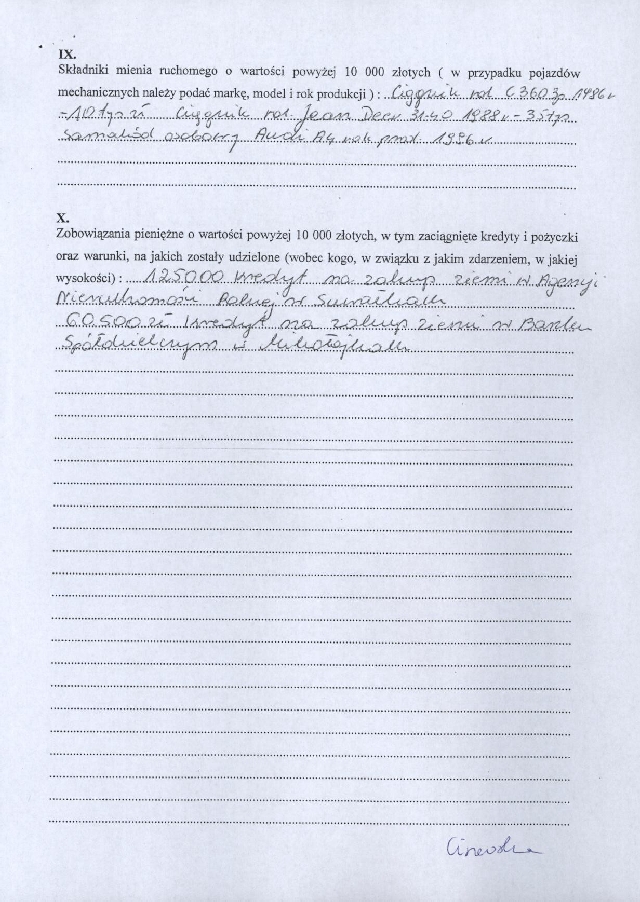 IX.
Składniki mienia ruchomego o wartości powyżej 10 000 złotych ( w przypadku pojazdów
mechanicznych należy podać markę, model i rok produkcji ) : Ciągnik rol C 360 3p 1986 r
-10 tys zł Ciągnik rol. Jean Deer 31-40 1988 r - 35 tys.
Samohód osobowy Audi A4 rok prod. 1996 r.
X.
Zobowiązania pieniężne o wartości powyżej 10 000 złotych, w tym zaciągnięte kredyty i pożyczki
oraz warunki, na jakich zostały udzielone (wobec kogo, w związku z jakim zdarzeniem, w jakiej
wysokości) : 125000 kredyt na zakup ziemi w Agencji
Nieruchomości Rolnej w Suwałkach
60.500 zł kredyt na zakup ziemi w Banku
Spółdzielczym w Mikołajkach